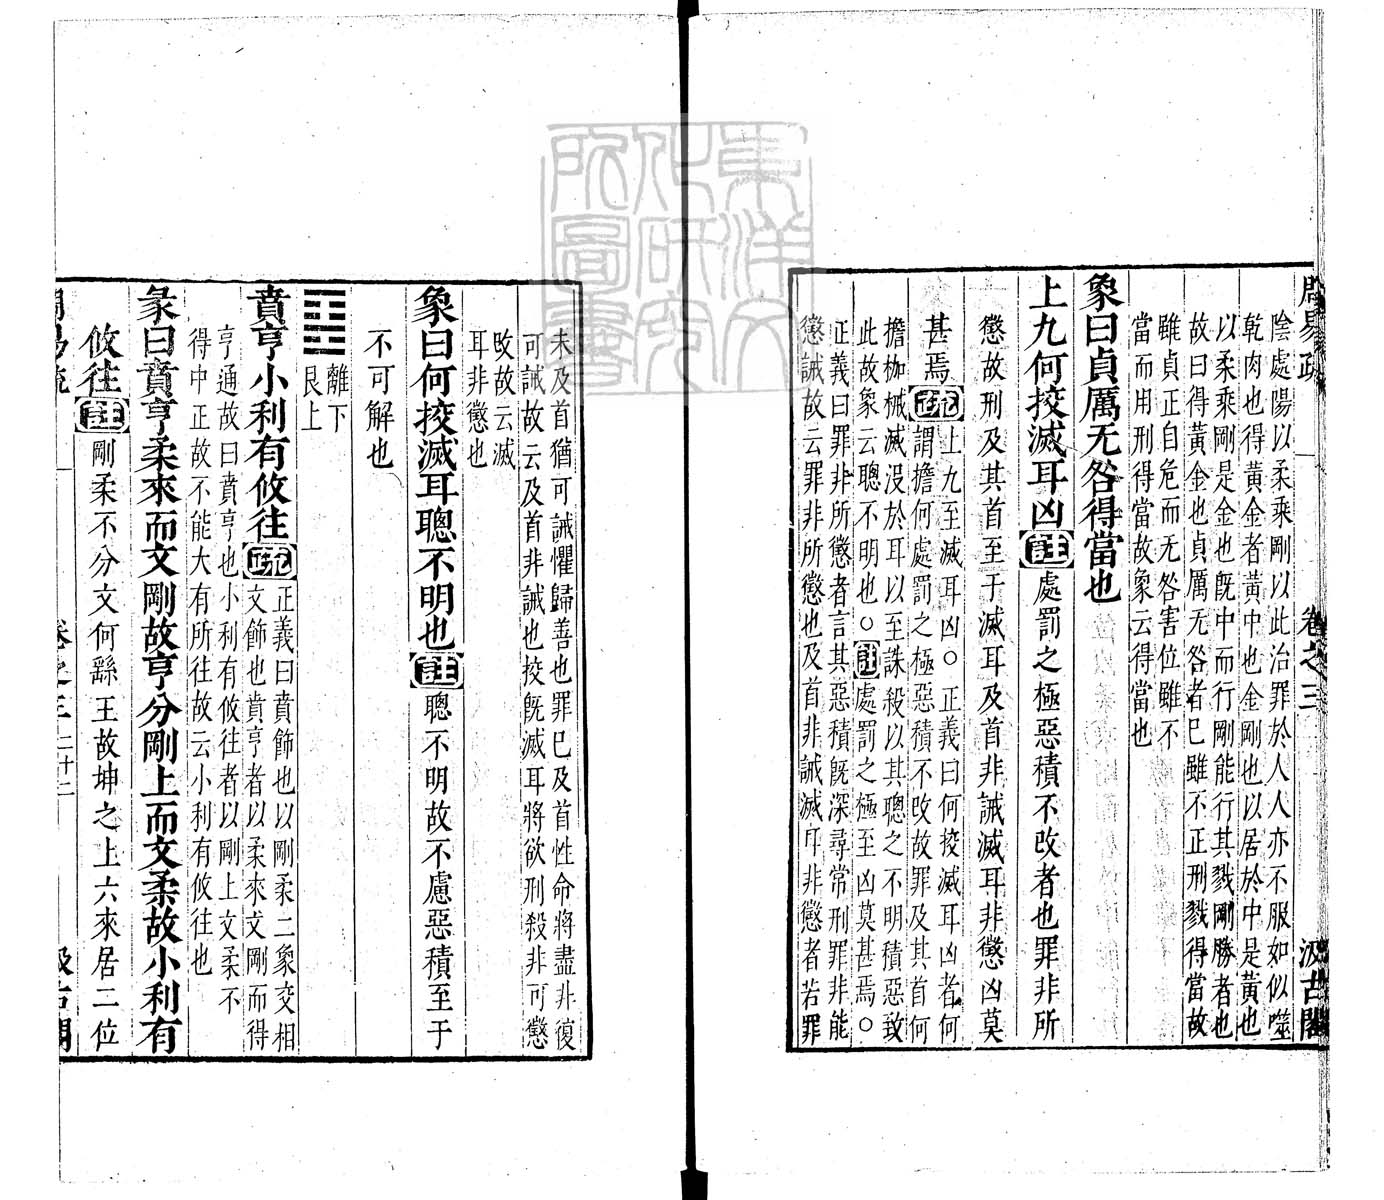 周易疏 卷之三 汲古閣
陰處陽以柔乘剛以此治罪於人人亦不服如似噬
乾肉也得黃金者黃中也金剛也以居於中是黃也
以柔乘剛是金也旣中而行剛能行其戮剛勝者也
故曰得黃金也貞厲无咎者已雖不正刑戮得當故
雖貞正自危而无咎害位雖不
當而用刑得當故象云得當也
象曰貞厲无咎得當也
上九何挍滅耳凶註處罰之極惡積不改者也罪非所
懲故刑及其首至于滅耳及首非誡滅耳非懲凶莫
甚焉疏上九至滅耳凶○正義曰何挍滅耳凶者何
謂擔何處罰之極惡積不改故罪及其首何
擔枷械滅沒於耳以至誅殺以其聰之不明積惡致
此故象云聰不明也○註處罰之極至凶莫甚焉○
正義曰罪非所懲者言其惡積旣深尋常刑罪非能
懲誡故云罪非所懲也及首非誡滅耳非懲者若罪
未及首猶可誡懼歸善也罪已及首性命將盡非復
可誡故云及首非誡也挍旣滅耳將欲刑殺非可懲
攺故云滅
耳非懲也
象曰何挍滅耳聰不明也註聰不明故不慮惡積至于
不可解也
䷕離下
艮上
賁亨小利有攸往疏正義曰賁飾也以剛柔二象交相
文飾也賁亨者以柔來文剛而得
亨通故曰賁亨也小利有攸往者以剛上文柔不
得中正故不能大有所往故云小利有攸往也
彖曰賁亨柔來而文剛故亨分剛上而文柔故小利有
攸往註剛柔不分文何繇王故坤之上六來居二位
周易疏 卷之三 二十二 汲古閣